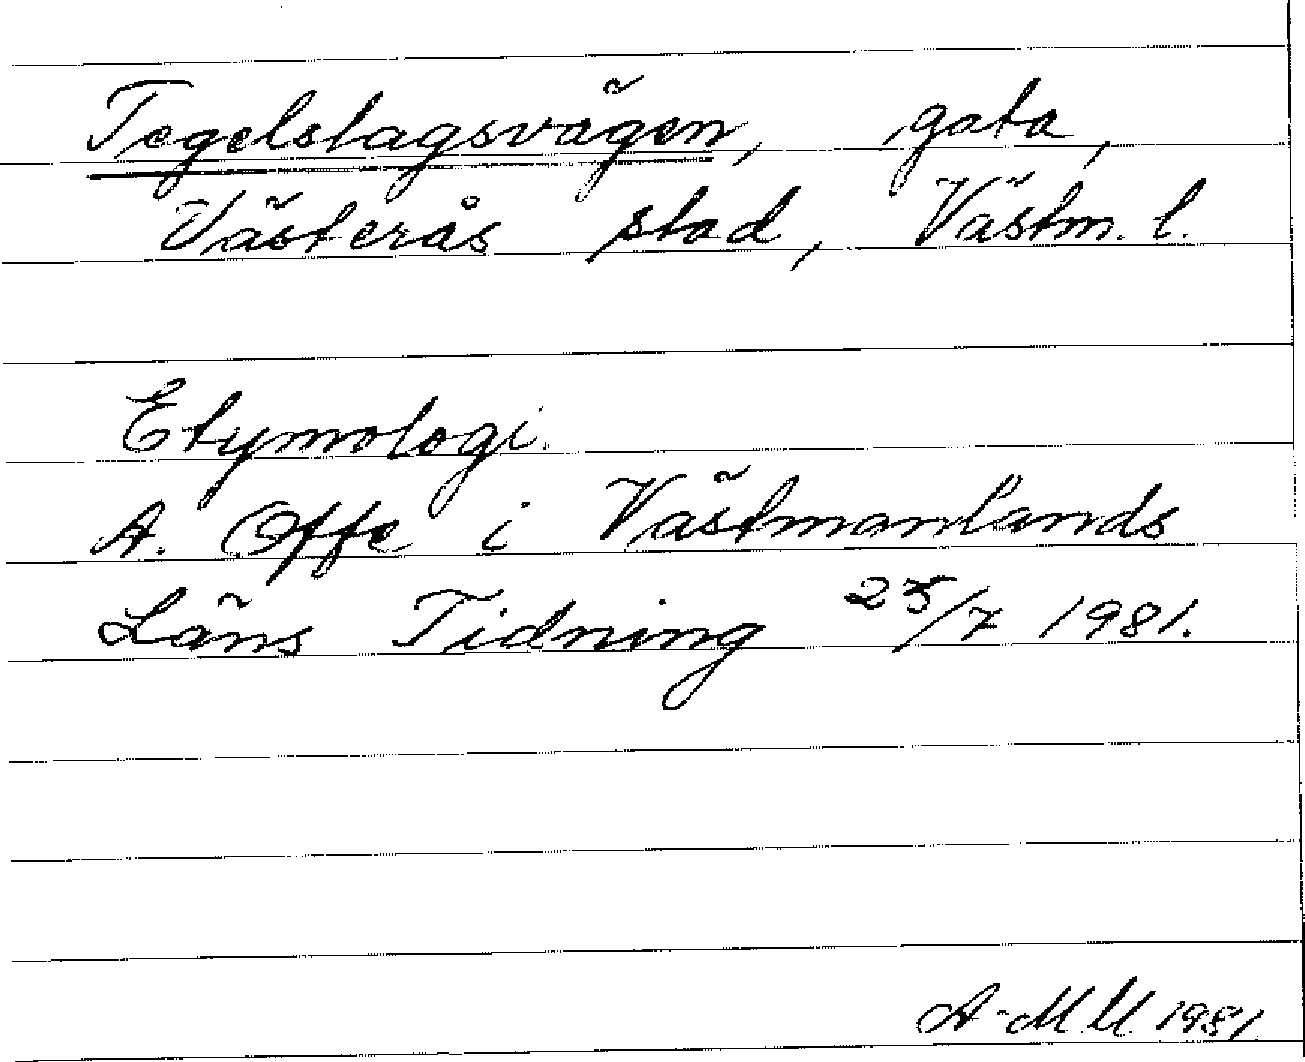 Tegelslagsvägen, gata,
Västerås stad, Västm. l.
Etymologi.
A. Offe i Västmanlands
Läns Tidning 25/7 1981.
A-M U. 1981